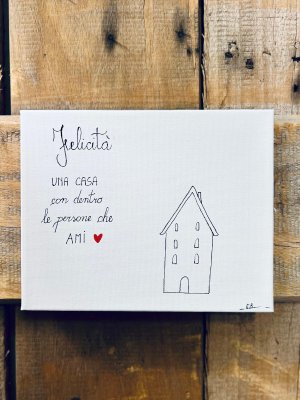 Felicità
UNA CASA
con dentro
le persone che
AMI